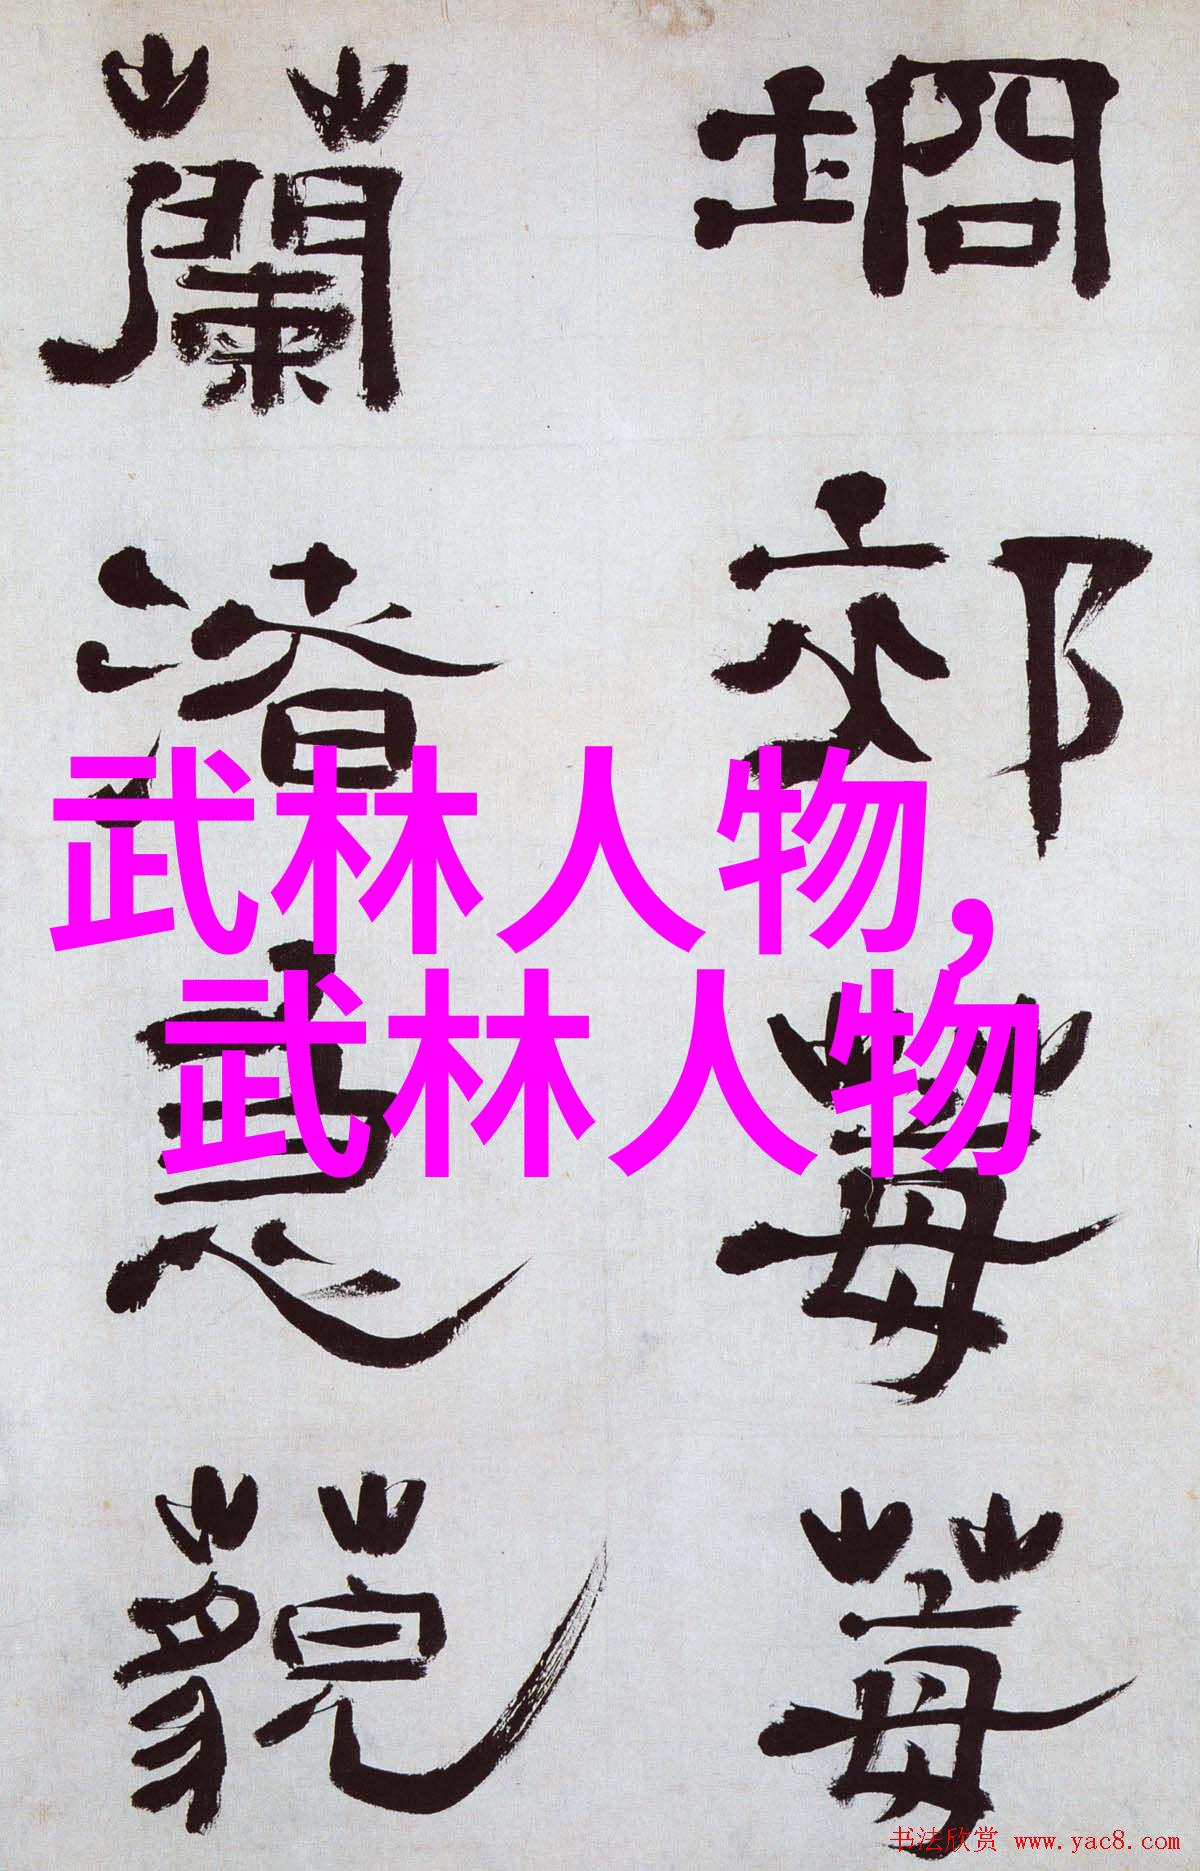 坰郊莓莓
蘭渚藐
武林人物,
武林人物
书法欣赏 www.yac8.com